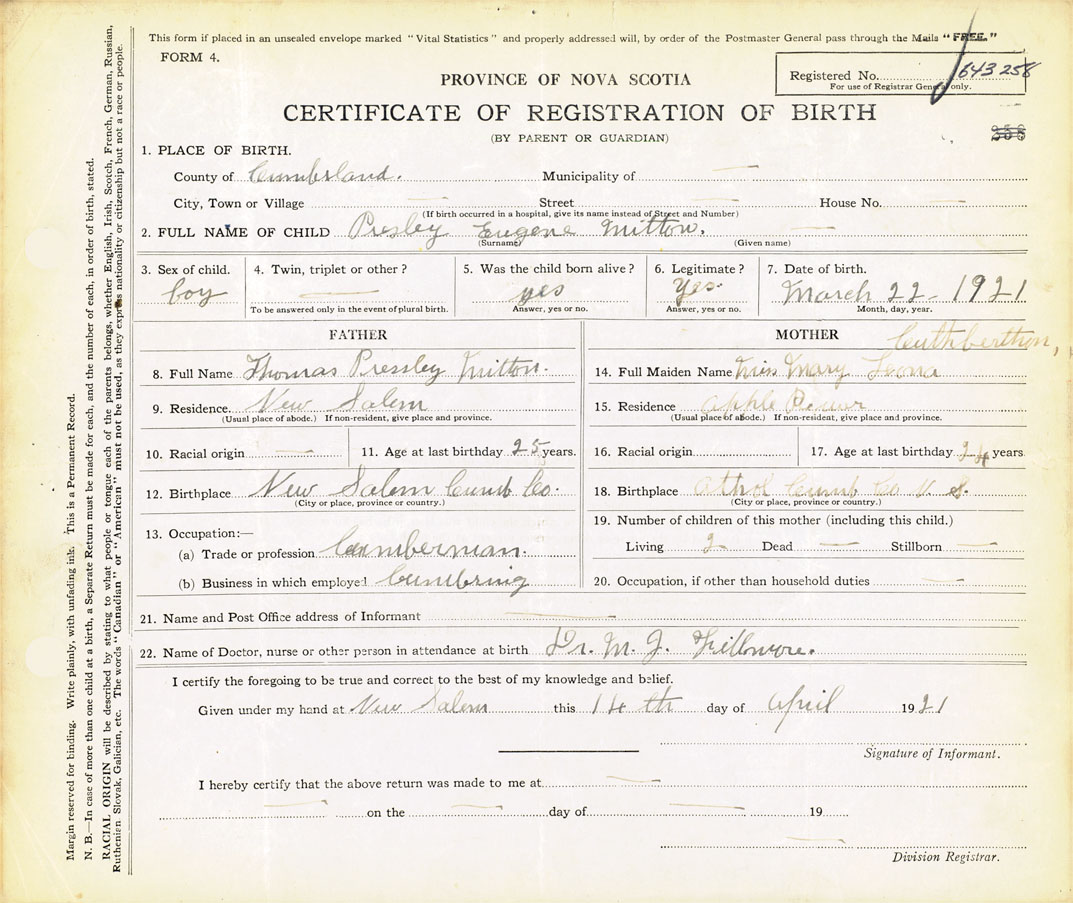 This form if placed in an unsealed envelope marked "Vital Statistics" and properly addressed will, by order of the Postmaster General pass through the Mails "FREE."
FORM 4.
Registered No. 643 258
For use of Registrar General only.
PROVINCE OF NOVA SCOTIA
CERTIFICATE OF REGISTRATION OF BIRTH
(BY PARENT OR GUARDIAN)
1. PLACE OF BIRTH.
County of Cumberland. Municipality of —
City, Town or Village — Street — House No. —
(If birth occurred in a hospital, give its name instead of Street and Number)
2. FULL NAME OF CHILD Presley Eugene Mitton. —
(Surname) (Given name)
3. Sex of child. 4. Twin, triplet or other? 5. Was the child born alive? 6. Legitimate? 7. Date of birth.
boy — yes Yes. March 22 - 1921
To be answered only in the event of plural birth. Answer, yes or no. Answer, yes or no. Month, day, year.
FATHER
8. Full Name Thomas Pressley Mitton.
9. Residence. New Salem
(Usual place of abode.) If non-resident, give place and province.
10. Racial origin — 11. Age at last birthday 25 years.
12. Birthplace New Salem Cumb Co.
(City or place, province or country.)
13. Occupation:—
(a) Trade or profession Lumberman.
(b) Business in which employed Lumbring
MOTHER
Cuthbertson,
14. Full Maiden Name Miss Mary Leona
15. Residence Apple River
(Usual place of abode.) If non-resident, give place and province.
16. Racial origin 17. Age at last birthday 24 years
18. Birthplace Athol Cumb Co N. S.
(City or place, province or country.)
19. Number of children of this mother (including this child.)
Living 2 Dead — Stillborn —
20. Occupation, if other than household duties —
21. Name and Post Office address of Informant —
22. Name of Doctor, nurse or other person in attendance at birth Dr. M. J. Fillmore.
I certify the foregoing to be true and correct to the best of my knowledge and belief.
Given under my hand at New Salem this 14 th day of April 1921
Signature of Informant.
I hereby certify that the above return was made to me at —
— on the — day of — 19
—
Division Registrar.
Margin reserved for binding. Write plainly, with unfading ink. This is a Permanent Record.
N. B.—In case of more than one child at a birth, a Separate Return must be made for each, and the number of each, in order of birth, stated.
RACIAL ORIGIN will be described by stating to what people or tongue each of the parents belongs, whether English, Irish, Scotch, French, German, Russian,
Ruthenian Slovak, Galician, etc. The words "Canadian" or "American" must not be used, as they express nationality or citizenship but not a race or people.